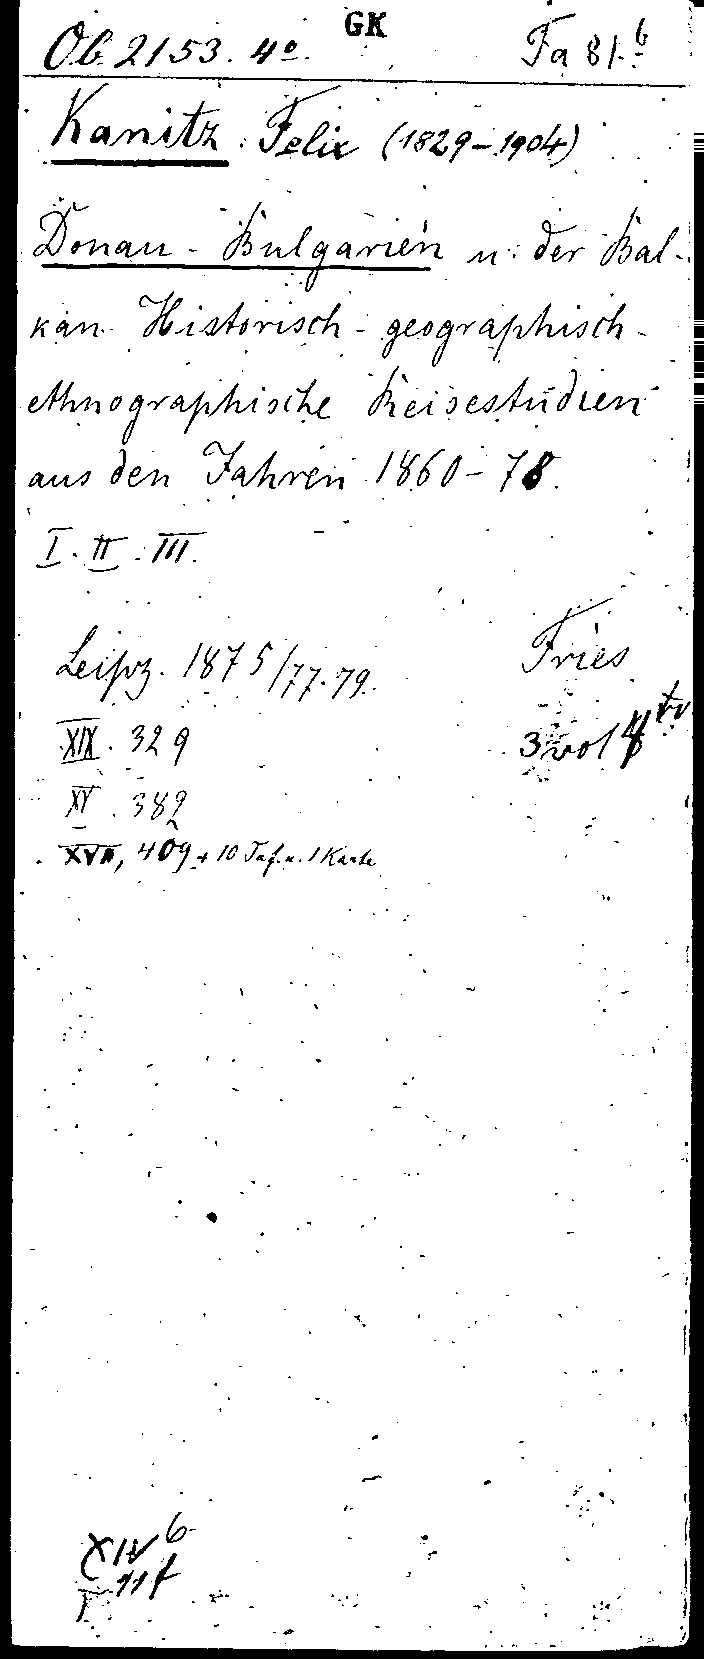 GK
Ob 2153. 4º. Fa 81. 6
Kanitz. Felix (1829–1904)
Donau-Bulgarien u. der Bal-
kan. Historisch-geographisch-
ethnographische Reisestudien
aus den Jahren 1860–78.
I. II. III.
Leipz. 1875/77.79. Fries
XIX. 329 3 vol 4
XI. 382
XVII, 409 + 10 Taf. u. 1 Karte
XIV 6